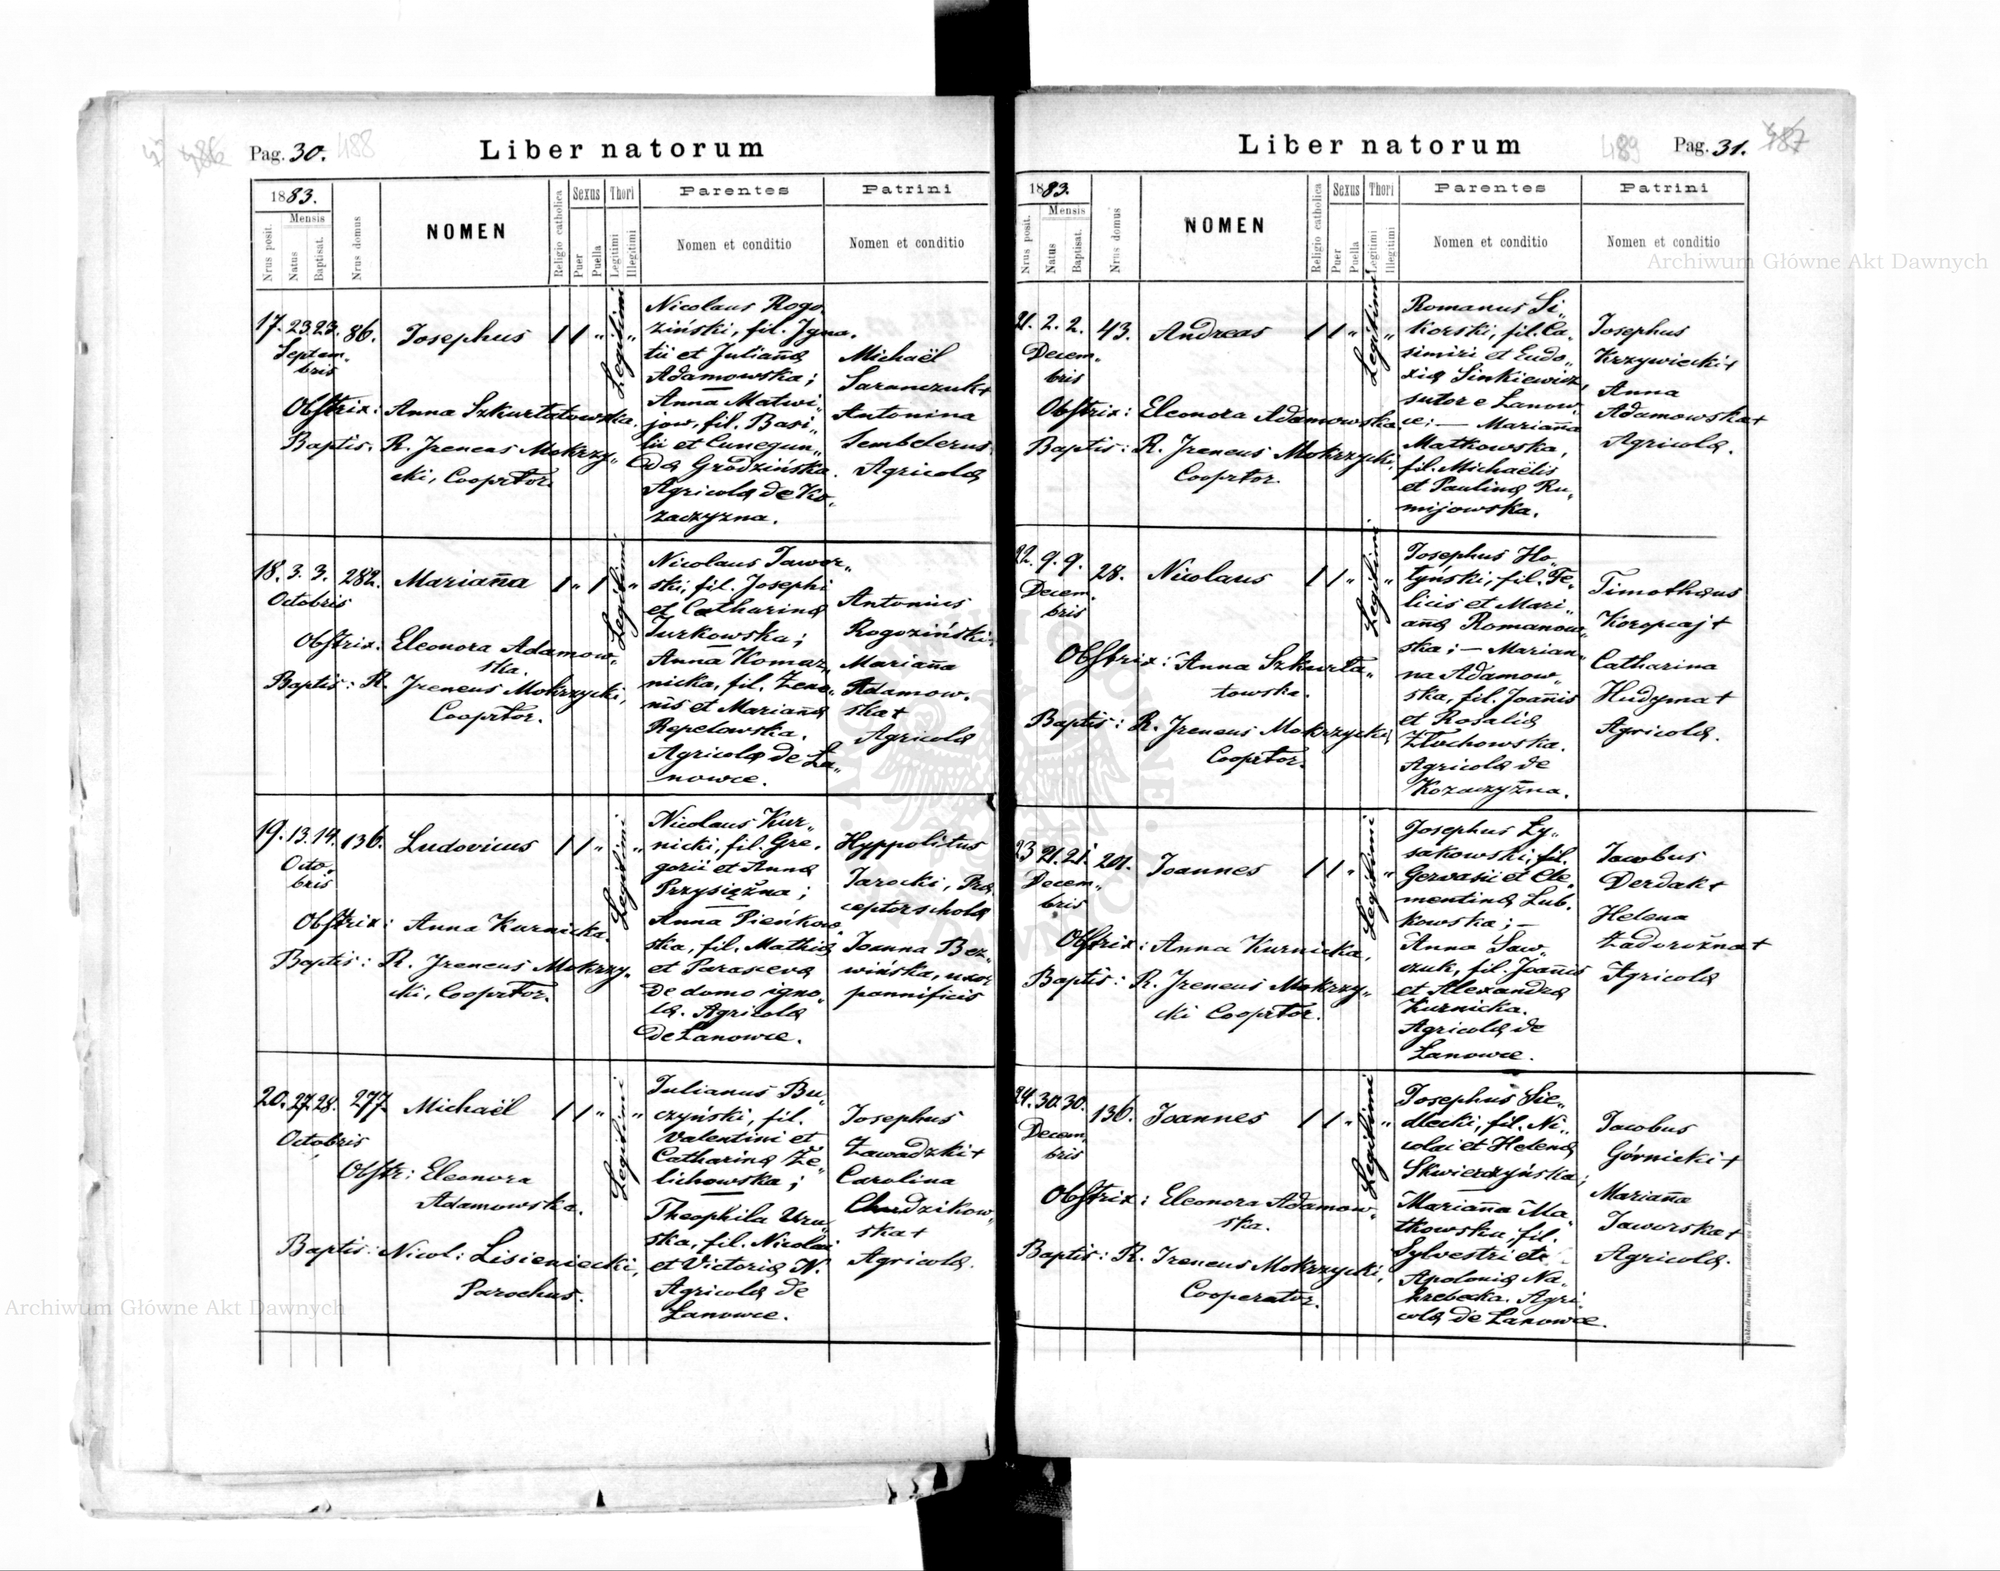 Pag. 30. 488
Liber natorum
1883.
Mensis
Nrus posit.
Natus
Baptisat.
Nrus domus
NOMEN
Religio catholica
Sexus
Puer
Puella
Thori
Legitimi
Illegitimi
Parentes
Nomen et conditio
Patrini
Nomen et conditio
17. 23. 23. 86. Josephus
Septem-
bris
Obstrix: Anna Szkurłatowska.
Baptis. R. Ireneus Mokrzy-
cki, Cooprtor.
Legitimi
Nicolaus Rogo-
ziński, fil. Igna-
tii et Juliañæ
Adamowska;
Anna Matwi-
jow, fil. Basi-
lii et Cunegun-
dæ Grodzińska.
Agricolæ de Ko-
zaczyzna.
Michaël
Saranczuk +
Antonina
Agricolæ
18. 3. 3. 282. Mariañna
Octobris
Obstrix: Eleonora Adamow-
ska.
Baptis: R. Ireneus Mokrzycki,
Cooprtor.
Legitimi
Nicolaus Jawor-
ski, fil. Josephi
et Catharinæ
Jurkowska;
Anna Komar-
nicka, fil. Zeno-
nis et Mariañæ
Repelowska.
Agricolæ de Ła-
nowce.
Antonius
Rogoziński +
Mariañna
Adamow-
ska +
Agricolæ
19. 13. 14. 136. Ludovicus
Octo-
bris
Obstrix: Anna Kurnicka.
Baptis: R. Ireneus Mokrzy-
cki, Cooprtor.
Legitimi
Nicolaus Kur-
nicki, fil. Gre-
gorii et Annæ
Przysiężna;
Anna Pieńkow-
ska, fil. Mathiæ
et Parascevæ
de domo igno-
ta. Agricolæ
de Łanowce.
Hyppolitus
Jarocki, Præ-
ceptor scholæ
Joanna Bez-
wińska, uxor
pannificis
20. 27. 28. 277. Michaël
Octobris
Obstr: Eleonora
Adamowska.
Baptis: Nicol: Lisieniecki,
Parochus.
Legitimi
Julianus Bu-
czyński, fil.
Valentini et
Catharinæ Ze-
lichowska;
Theophila Uru-
ska, fil. Nicolai
et Victoriæ N.
Agricolæ de
Łanowce.
Josephus
Zawadzki +
Carolina
Chudzikow-
ska +
Agricolæ.
Liber natorum
489 Pag. 31. 487
1883.
Mensis
Nrus posit.
Natus
Baptisat.
Nrus domus
NOMEN
Religio catholica
Sexus
Puer
Puella
Thori
Legitimi
Illegitimi
Parentes
Nomen et conditio
Patrini
Nomen et conditio
21. 2. 2. 43. Andreas
Decem-
bris
Obstrix: Eleonora Adamowska
Baptis: R. Ireneus Mokrzycki,
Cooprtor.
Legitimi
Romanus Si-
korski, fil. Ca-
simiri et Eudo-
xiæ Sinkiewicz,
sutor e Łanow-
ce; — Mariañna
Matkowska,
fil. Michaëlis
et Paulinæ Ru-
mijowska.
Josephus
Krzywiecki +
Anna
Adamowska +
Agricolæ.
22. 9. 9. 28. Nicolaus
Decem-
bris
Obstrix: Anna Szkurła-
towska.
Baptis: R. Ireneus Mokrzycki,
Cooprtor.
Legitimi
Josephus Ho-
tyński, fil. Fe-
licis et Mari-
añæ Romanow-
ska; — Marian-
na Adamow-
ska, fil. Joañnis
et Rosaliæ
Złochowska.
Agricolæ de
Kozaczyzna.
Timothæus
Koropaj +
Catharina
Hudyma +
Agricolæ.
23 21. 21. 201. Joannes
Decem-
bris
Obstrix: Anna Kurnicka,
Baptis: R. Ireneus Mokrzy-
cki Cooprtor.
Legitimi
Josephus Ły-
sakowski, fil.
Gervasii et Cle-
mentinæ Lub-
kowska; —
Anna Saw-
czuk, fil. Joañnis
et Alexandræ
Kurnicka.
Agricolæ de
Łanowce.
Jacobus
Derdak +
Helena
Zadorożna +
Agricolæ
24. 30. 30. 136. Joannes
Decem-
bris
Obstrix: Eleonora Adamow-
ska.
Baptis: R. Ireneus Mokrzycki,
Cooperator.
Legitimi
Josephus Sie-
dlecki, fil. Ni-
colai et Helenæ
Skwierczyńska;
Mariañna Ma-
tkowska, fil.
Sylvestri et
Apoloniæ Na-
hrebecka. Agri-
colæ de Łanowce.
Jacobus
Górnicki +
Mariañna
Jaworska +
Agricolæ.
Nakładem Drukarni Ludowej we Lwowie.
Archiwum Główne Akt Dawnych
Archiwum Główne Akt Dawnych